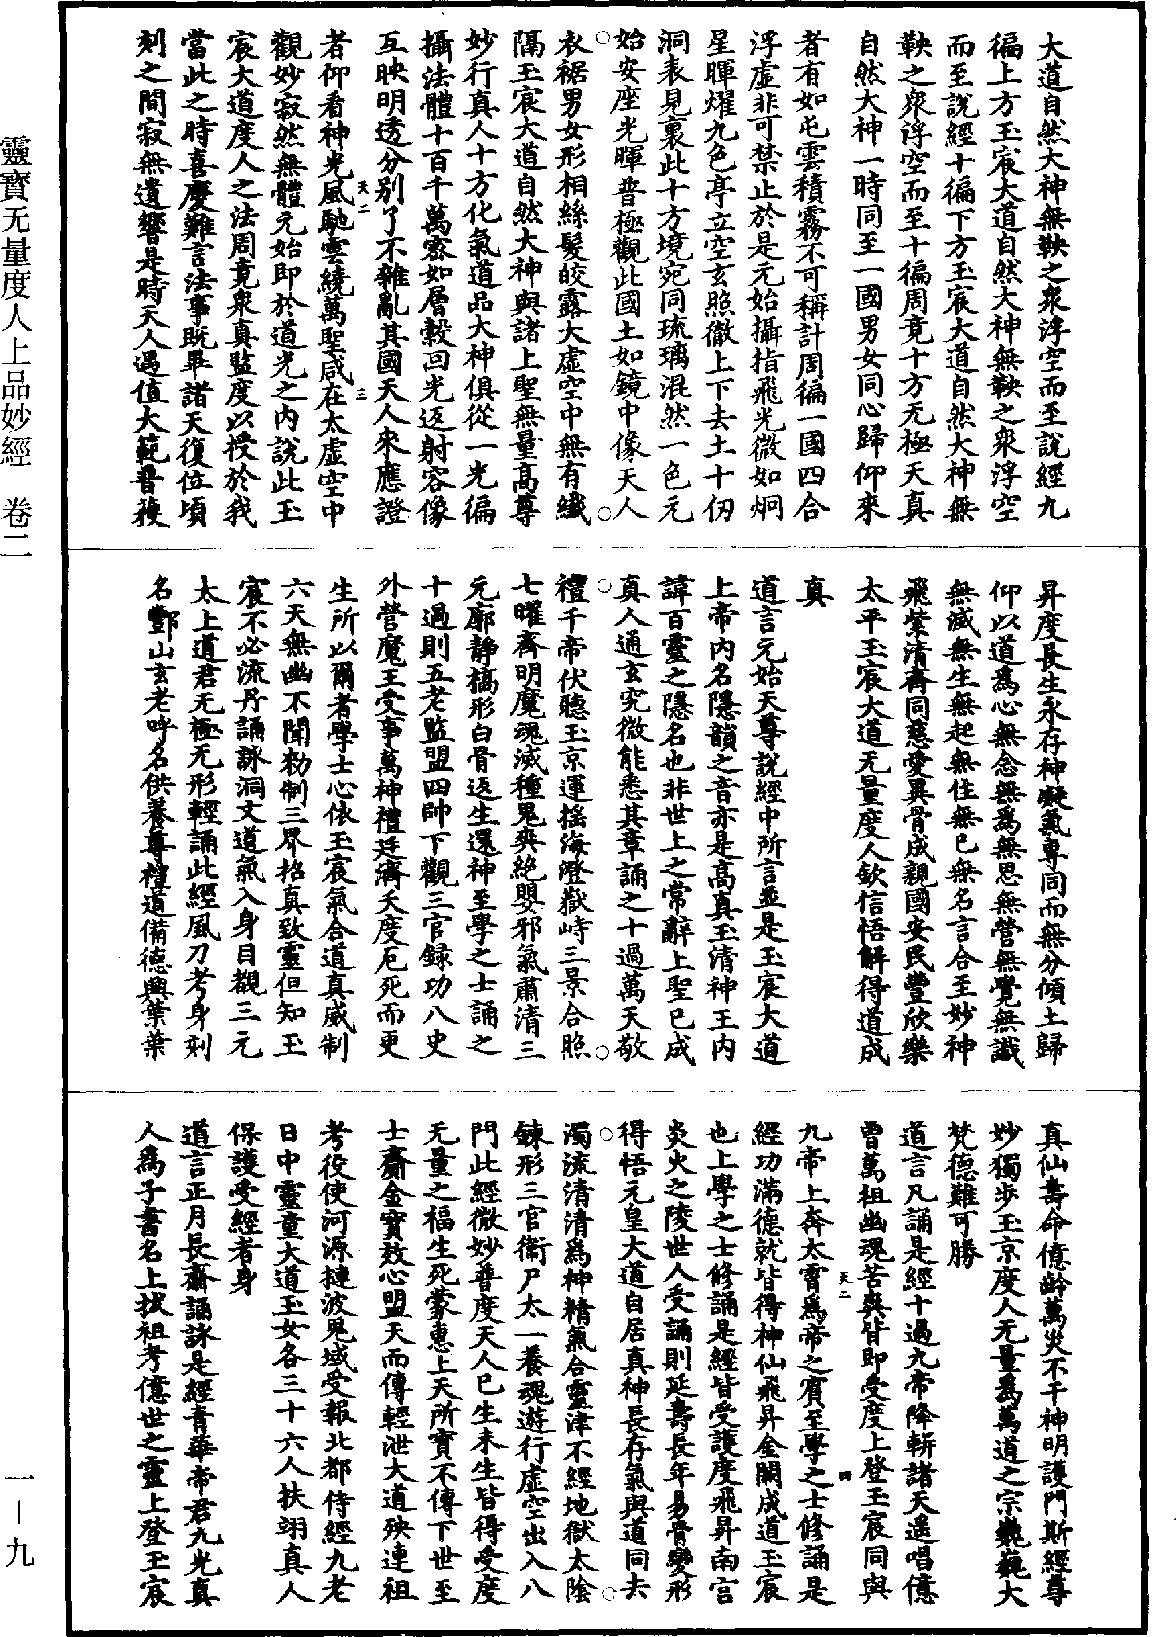 大道自然大神無鞅之衆浮空而至說經九
徧上方玉宸大道自然大神無鞅之衆浮空
而至說經十徧下方玉宸大道自然大神無
鞅之衆浮空而至十徧周竟十方无極天真
自然大神一時同至一國男女同心歸仰來
者有如屯雲積霧不可稱計周徧一國四合
浮虛非可禁止於是元始攝指飛光微如炯
星暉燿九色亭立空玄照徹上下去土十仞
洞表見裏此十方境宛同琉璃混然一色元
始安座光暉普極觀此國土如鏡中像天人
衣裾男女形相絲髮皎露大虛空中無有纖
隔玉宸大道自然大神與諸上聖無量高尊
妙行真人十方化氣道品大神俱從一光徧
攝法體十百千萬密如層縠回光返射容像
互映明透分別了不雜亂其國天人來應證
者仰看神光風馳雲繞萬聖咸在太虛空中
觀妙寂然無體元始即於道光之內說此玉
宸大道度人之法周竟衆真監度以授於我
當此之時喜慶難言法事既畢諸天復位頃
刻之間寂無遺響是時天人遇值大範普獲
天二
三
昇度長生永存神凝氣專同而無分傾土歸
仰以道爲心無念無爲無思無營無覺無識
無滅無生無起無住無已無名言合至妙神
飛紫清齊同慈愛異骨成親國安民豐欣樂
太平玉宸大道无量度人欽信悟解得道成
真
道言元始天尊說經中所言並是玉宸大道
上帝內名隱韻之音亦是高真玉清神王內
諱百靈之隱名也非世上之常辭上聖已成
真人通玄究微能悉其章誦之十過萬天敬
禮千帝伏聽玉京運搖海澄嶽峙三景合照
七曜齊明魔魂滅種鬼爽絕嬰邪氣肅清三
元廓靜槁形白骨返生還神至學之士誦之
十過則五老監盟四帥下觀三官錄功八史
外營魔王受事萬神禮廷濟夭度厄死而更
生所以爾者學士心依玉宸氣合道真威制
六天無幽不聞勑制三界格真致靈但知玉
宸不必流丹誦詠洞文道氣入身目覩三元
太上道君无極无形輕誦此經風刀考身刻
名酆山玄老呼名供養尊禮道備德興葉葉
真仙壽命億齡萬炎不干神明護門斯經尊
妙獨步玉京度人无量爲萬道之宗巍巍大
梵德難可勝
道言凡誦是經十過九帝降軿諸天遥唱億
曾萬祖幽魂苦爽皆即受度上登玉宸同與
九帝上奔太霄爲帝之賓至學之士修誦是
經功滿德就皆得神仙飛昇金闕成道玉宸
也上學之士修誦是經皆受護度飛昇南宫
炎火之陵世人受誦則延壽長年易骨變形
得悟元皇大道自居真神長存氣與道同去
濁流清清爲神精氣合靈津不經地獄太陰
鍊形三官衛尸太一養魂遊行虛空出入八
門此經微妙普度天人已生未生皆得受度
无量之福生死蒙惠上天所寶不傳下世至
士齎金寶效心盟天而傳輕泄大道殃連祖
考役使河源撻波鬼域受報北都侍經九老
日中靈童大道玉女各三十六人扶翊真人
保護受經者身
道言正月長齋誦詠是經青華帝君九光真
人爲子書名上拔祖考億世之靈上登玉宸
天二
四
靈寶无量度人上品妙經　卷二
一－九